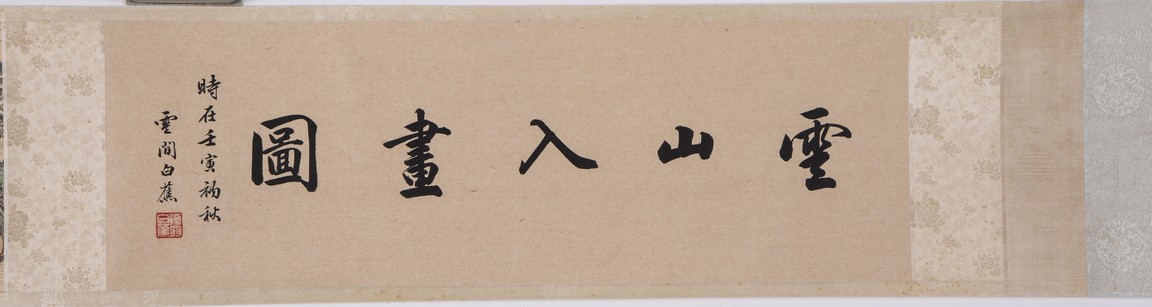 雲山入畫圖
時在壬寅初秋
雲間白蕉